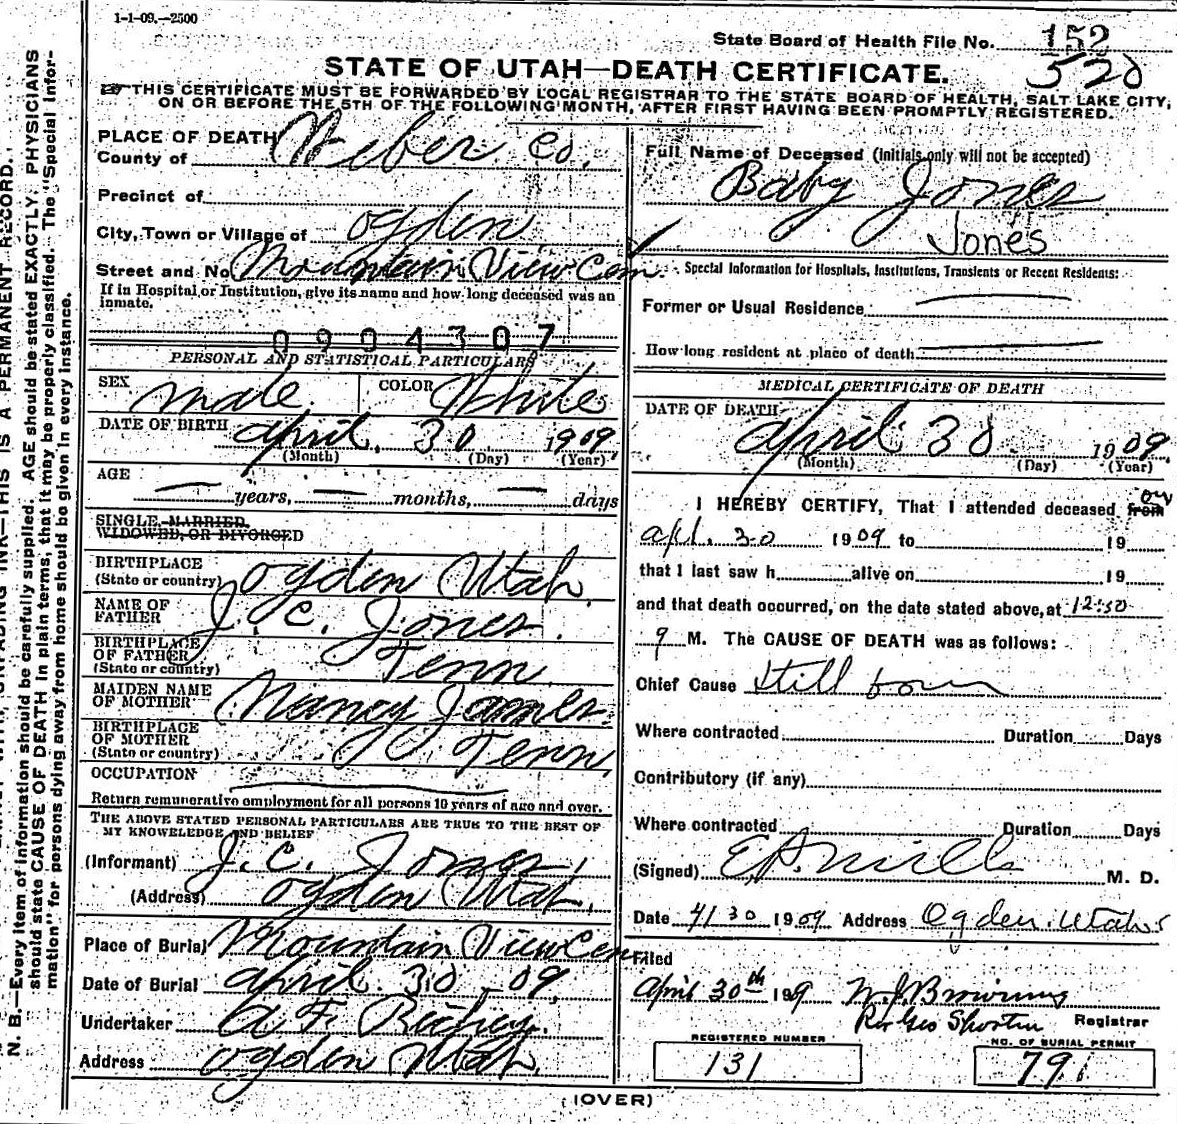 1-1-09.—2500
State Board of Health File No. 152
520
STATE OF UTAH—DEATH CERTIFICATE.
THIS CERTIFICATE MUST BE FORWARDED BY LOCAL REGISTRAR TO THE STATE BOARD OF HEALTH, SALT LAKE CITY,
ON OR BEFORE THE 5TH OF THE FOLLOWING MONTH, AFTER FIRST HAVING BEEN PROMPTLY REGISTERED.
PLACE OF DEATH
County of Weber Co.
Precinct of
City, Town or Village of Ogden
Street and No. Mountain View Cem
If in Hospital or Institution, give its name and how long deceased was an
inmate.
0904307
PERSONAL AND STATISTICAL PARTICULARS
SEX male. COLOR White
DATE OF BIRTH april. 30 1909
(Month) (Day) (Year)
AGE
— years, — months, — days
SINGLE, MARRIED,
WIDOWED, OR DIVORCED
BIRTHPLACE
(State or country) Ogden Utah.
NAME OF
FATHER J. C. Jones.
BIRTHPLACE
OF FATHER
(State or country) Tenn.
MAIDEN NAME
OF MOTHER Nancy James.
BIRTHPLACE
OF MOTHER
(State or country) Tenn,
OCCUPATION
Return remunerative employment for all persons 10 years of age and over.
THE ABOVE STATED PERSONAL PARTICULARS ARE TRUE TO THE BEST OF
MY KNOWLEDGE AND BELIEF
(Informant) J. C. Jones
(Address) Ogden Utah.
Place of Burial Mountain View Cem
Date of Burial april. 30 - 09.
Undertaker A. F. Richey.
Address Ogden Utah.
Full Name of Deceased (Initials only will not be accepted)
Baby Jones
Jones
Special Information for Hospitals, Institutions, Transients or Recent Residents:
Former or Usual Residence
How long resident at place of death
MEDICAL CERTIFICATE OF DEATH
DATE OF DEATH april. 30 1909.
(Month) (Day) (Year)
on
I HEREBY CERTIFY, That I attended deceased from
apl. 30 1909 to 19
that I last saw h alive on 19
and that death occurred, on the date stated above, at 12:50
M. The CAUSE OF DEATH was as follows:
Chief Cause Still born
Where contracted Duration Days
Contributory (if any)
Where contracted Duration Days
(Signed) Mills M. D.
Date 4/30 1909 Address Ogden. Utah
Filed
April 30th 1909 W. J. Browning
Per Geo Shorten Registrar
REGISTERED NUMBER
131
NO. OF BURIAL PERMIT
791
(OVER)
A PERMANENT RECORD.
N. B.—Every item of information should be carefully supplied. AGE should be stated EXACTLY. PHYSICIANS
should state CAUSE OF DEATH in plain terms, that it may be properly classified. The "Special Infor-
mation" for persons dying away from home should be given in every instance.